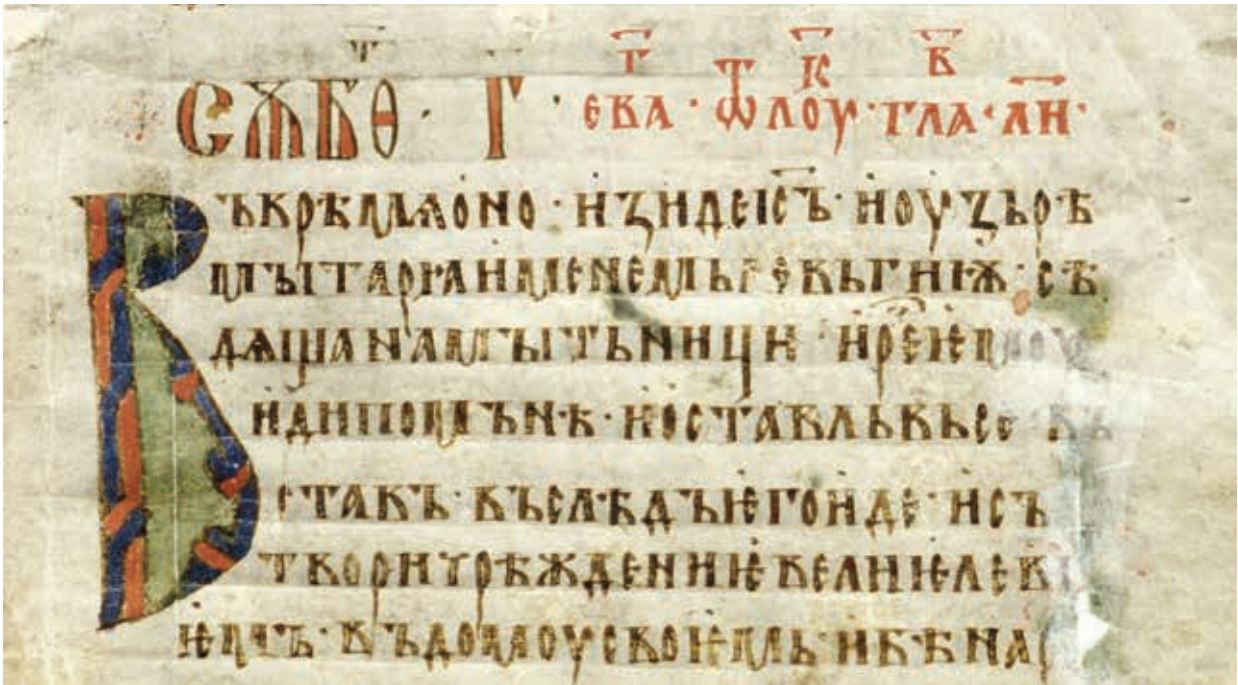 СѪБⷮО · Г · ЕВАⷢ · ѾЛОУⷦ · ГЛАⷡ · ЛИ҃ ·
Въкрѣмѧоно · и҅ꙁидеіс҃ъ · и҅оуꙁьрѣ
мꙑтарꙗименемь · левьгиѭ · сѣ
дѧщанамꙑтьници · и҅ре҇ѥмоу
идипомьнѣ · и҅оставльвьсе въ
ставъ · въслѣдъѥгоиде · и҅съ
твориꙋрѣждениѥвелиѥлев
ѥмъ · въдомоусвоѥмь · и҅бѣна